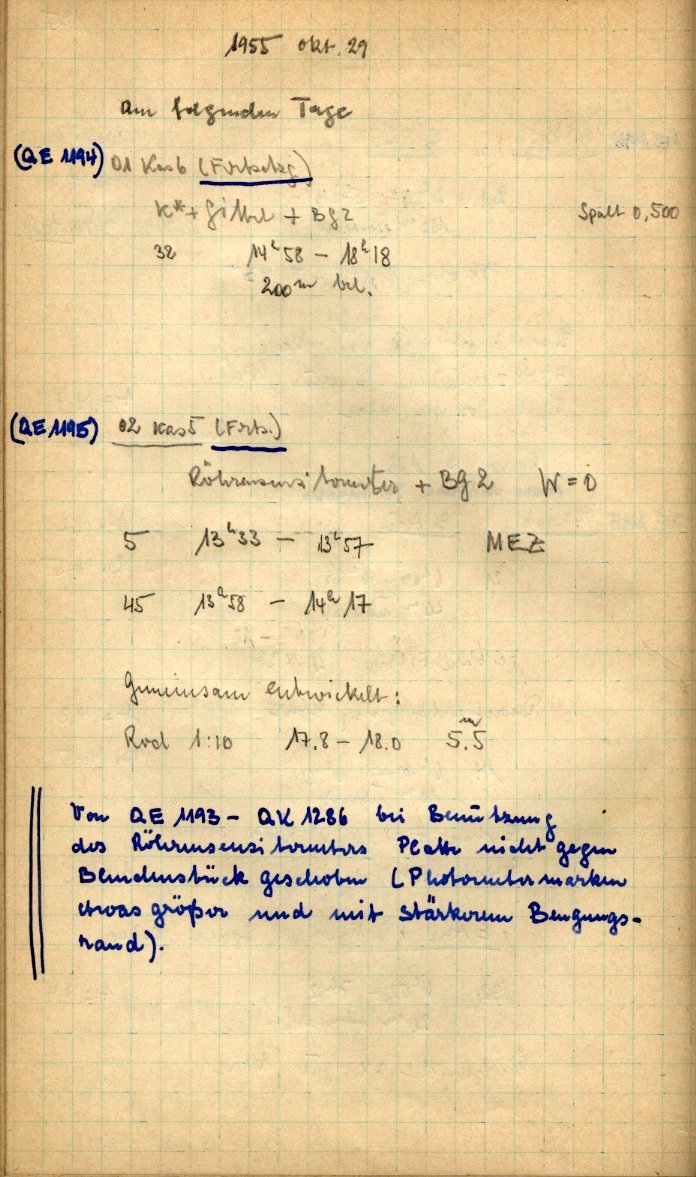 1955 Okt. 29
Am folgenden Tage
(QE 1194) 01 Kas 6 (Fortsetzg)
K* + Gitter + Bg 2 Spalt 0,500
32 14h 58 – 18h 18
200m bel.
(QE 1195) 02 Kas 5 (Forts.)
Röhrensensitometer + BG 2 W = 0
5 13h 33 – 13h 57 MEZ
45 13h 58 – 14h 17
Gemeinsam entwickelt:
Rod 1:10 17.8 – 18.0 5.5m
Von QE 1193 – QK 1286 bei Benützung
des Röhrensensitometers Platte nicht gegen
Blendenstück geschoben (Photometermarken
etwas größer und mit stärkerem Beugungs-
rand).